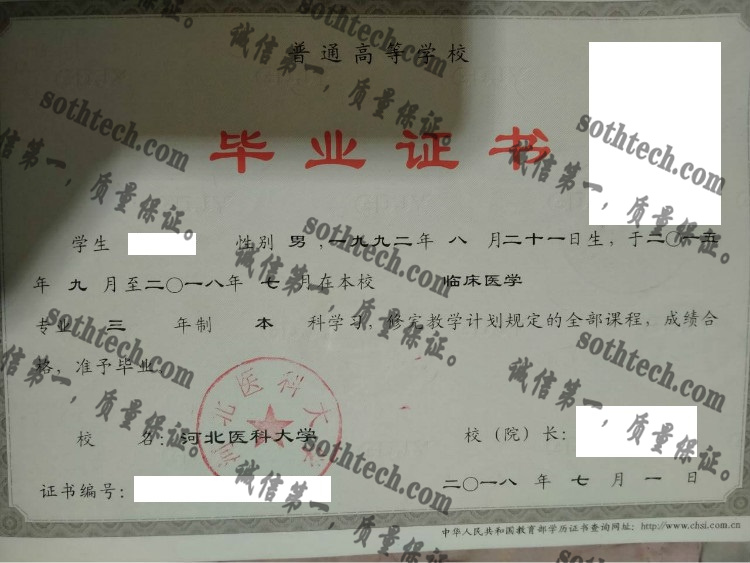 普通高等学校
毕业证书
学生 性别 男 ,一九九二年 八 月二十一日生，于二〇一五
年 九 月至二〇一八年 七 月在本校 临床医学
专业 三 年制 本 科学习，修完教学计划规定的全部课程，成绩合
格，准予毕业
河北医科大学
校 名：河北医科大学 校（院）长：
证书编号： 二〇一八 年 七 月 一 日
中华人民共和国教育部学历证书查询网址：http://www.chsi.com.cn
sothtech.com
诚信第一，质量保证。
sothtech.com
诚信第一，质量保证。
sothtech.com
诚信第一，质量保证。
sothtech.com
诚信第一，质量保证。
sothtech.com
诚信第一，质量保证。
sothtech.com
诚信第一，质量保证。
sothtech.com
诚信第一，质量保证。
sothtech.com
诚信第一，质量保证。